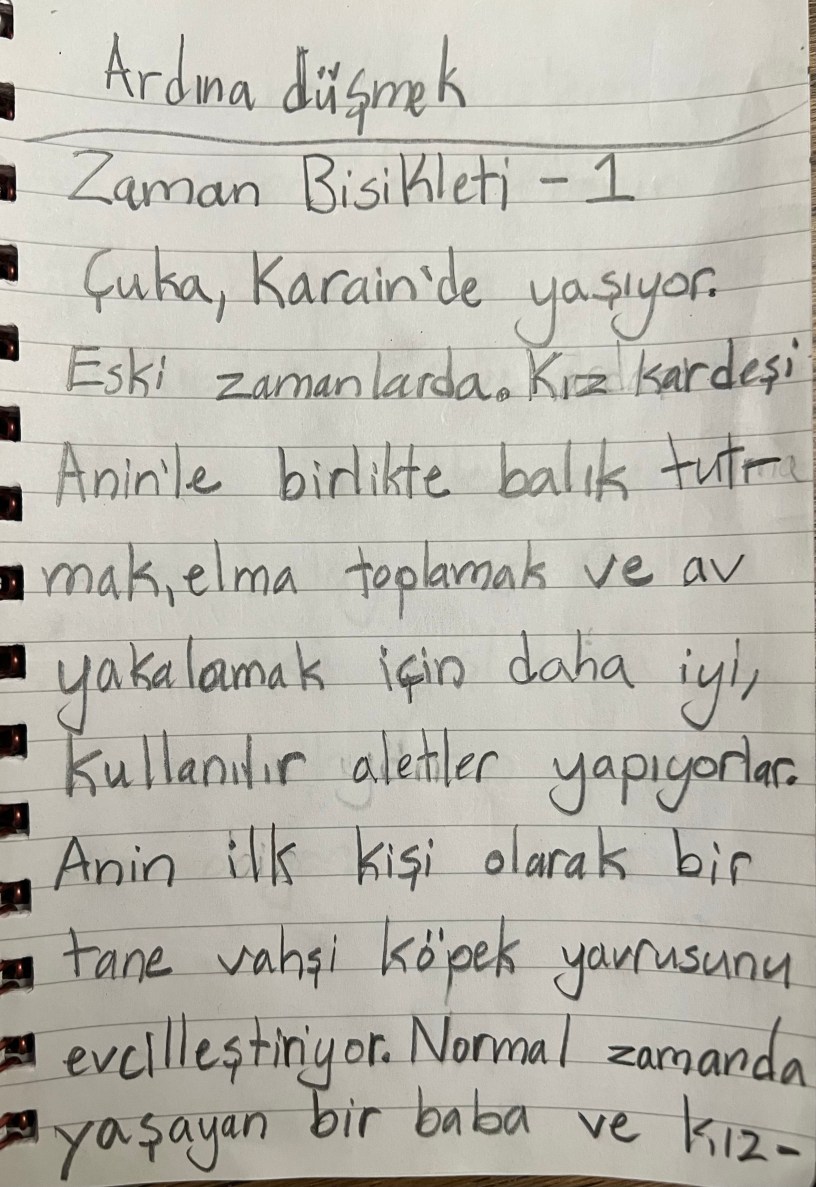 Ardına düşmek
Zaman Bisikleti - 1
Çuka, Karain'de yaşıyor.
Eski zamanlarda. Kız kardeşi
Anin'le birlikte balık tut-
mak, elma toplamak ve av
yakalamak için daha iyi,
kullanılır aletler yapıyorlar.
Anin ilk kişi olarak bir
tane vahşi köpek yavrusunu
evcilleştiriyor. Normal zamanda
yaşayan bir baba ve kız-